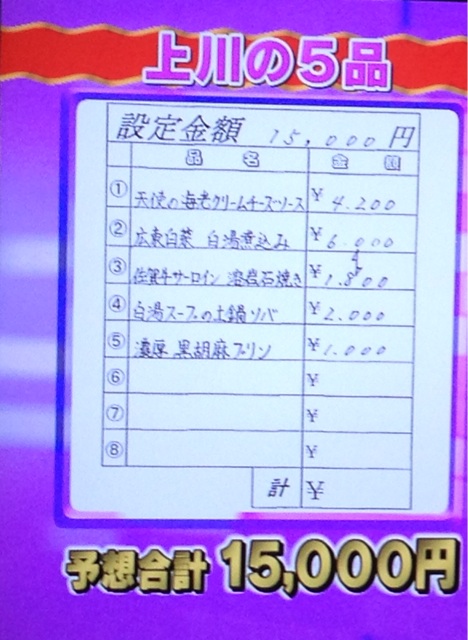 上川の5品
設定金額 15,000円
品名 金額
① 天使の海老クリームチーズソース ¥4.200
② 広東白菜 白湯煮込み ¥6.000
③ 佐賀牛サーロイン 溶岩石焼き ¥1.800
④ 白湯スープの土鍋ソバ ¥2.000
⑤ 濃厚 黒胡麻プリン ¥1.000
⑥ ¥
⑦ ¥
⑧ ¥
計 ¥
予想合計 15,000円